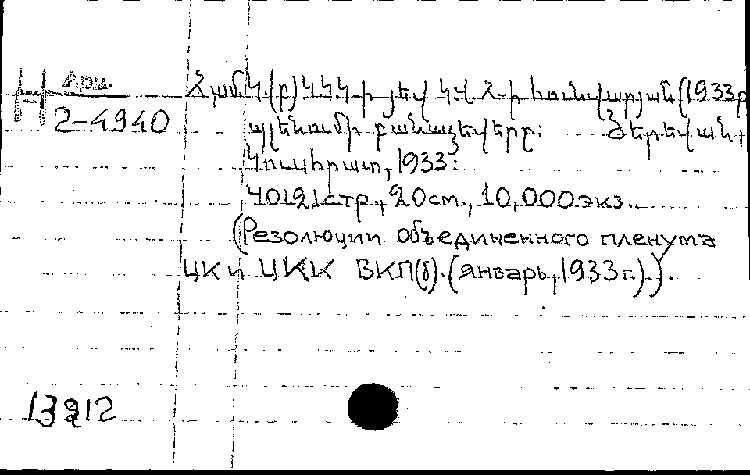 Арм.
2-4940
Համ.Կ.(բ)ԿԿԿ-ի յեվ ԿՎՀ-ի հունվարյան (1933թ
պլենումի բանաձեվերը: Յերեվան,
Կուսհրատ, 1933:
40 стр., 20см., 10,000экз.
(Резолюции объединенного пленума
ЦК и ЦКК ВКП(б).(январь,1933г.).).
13212